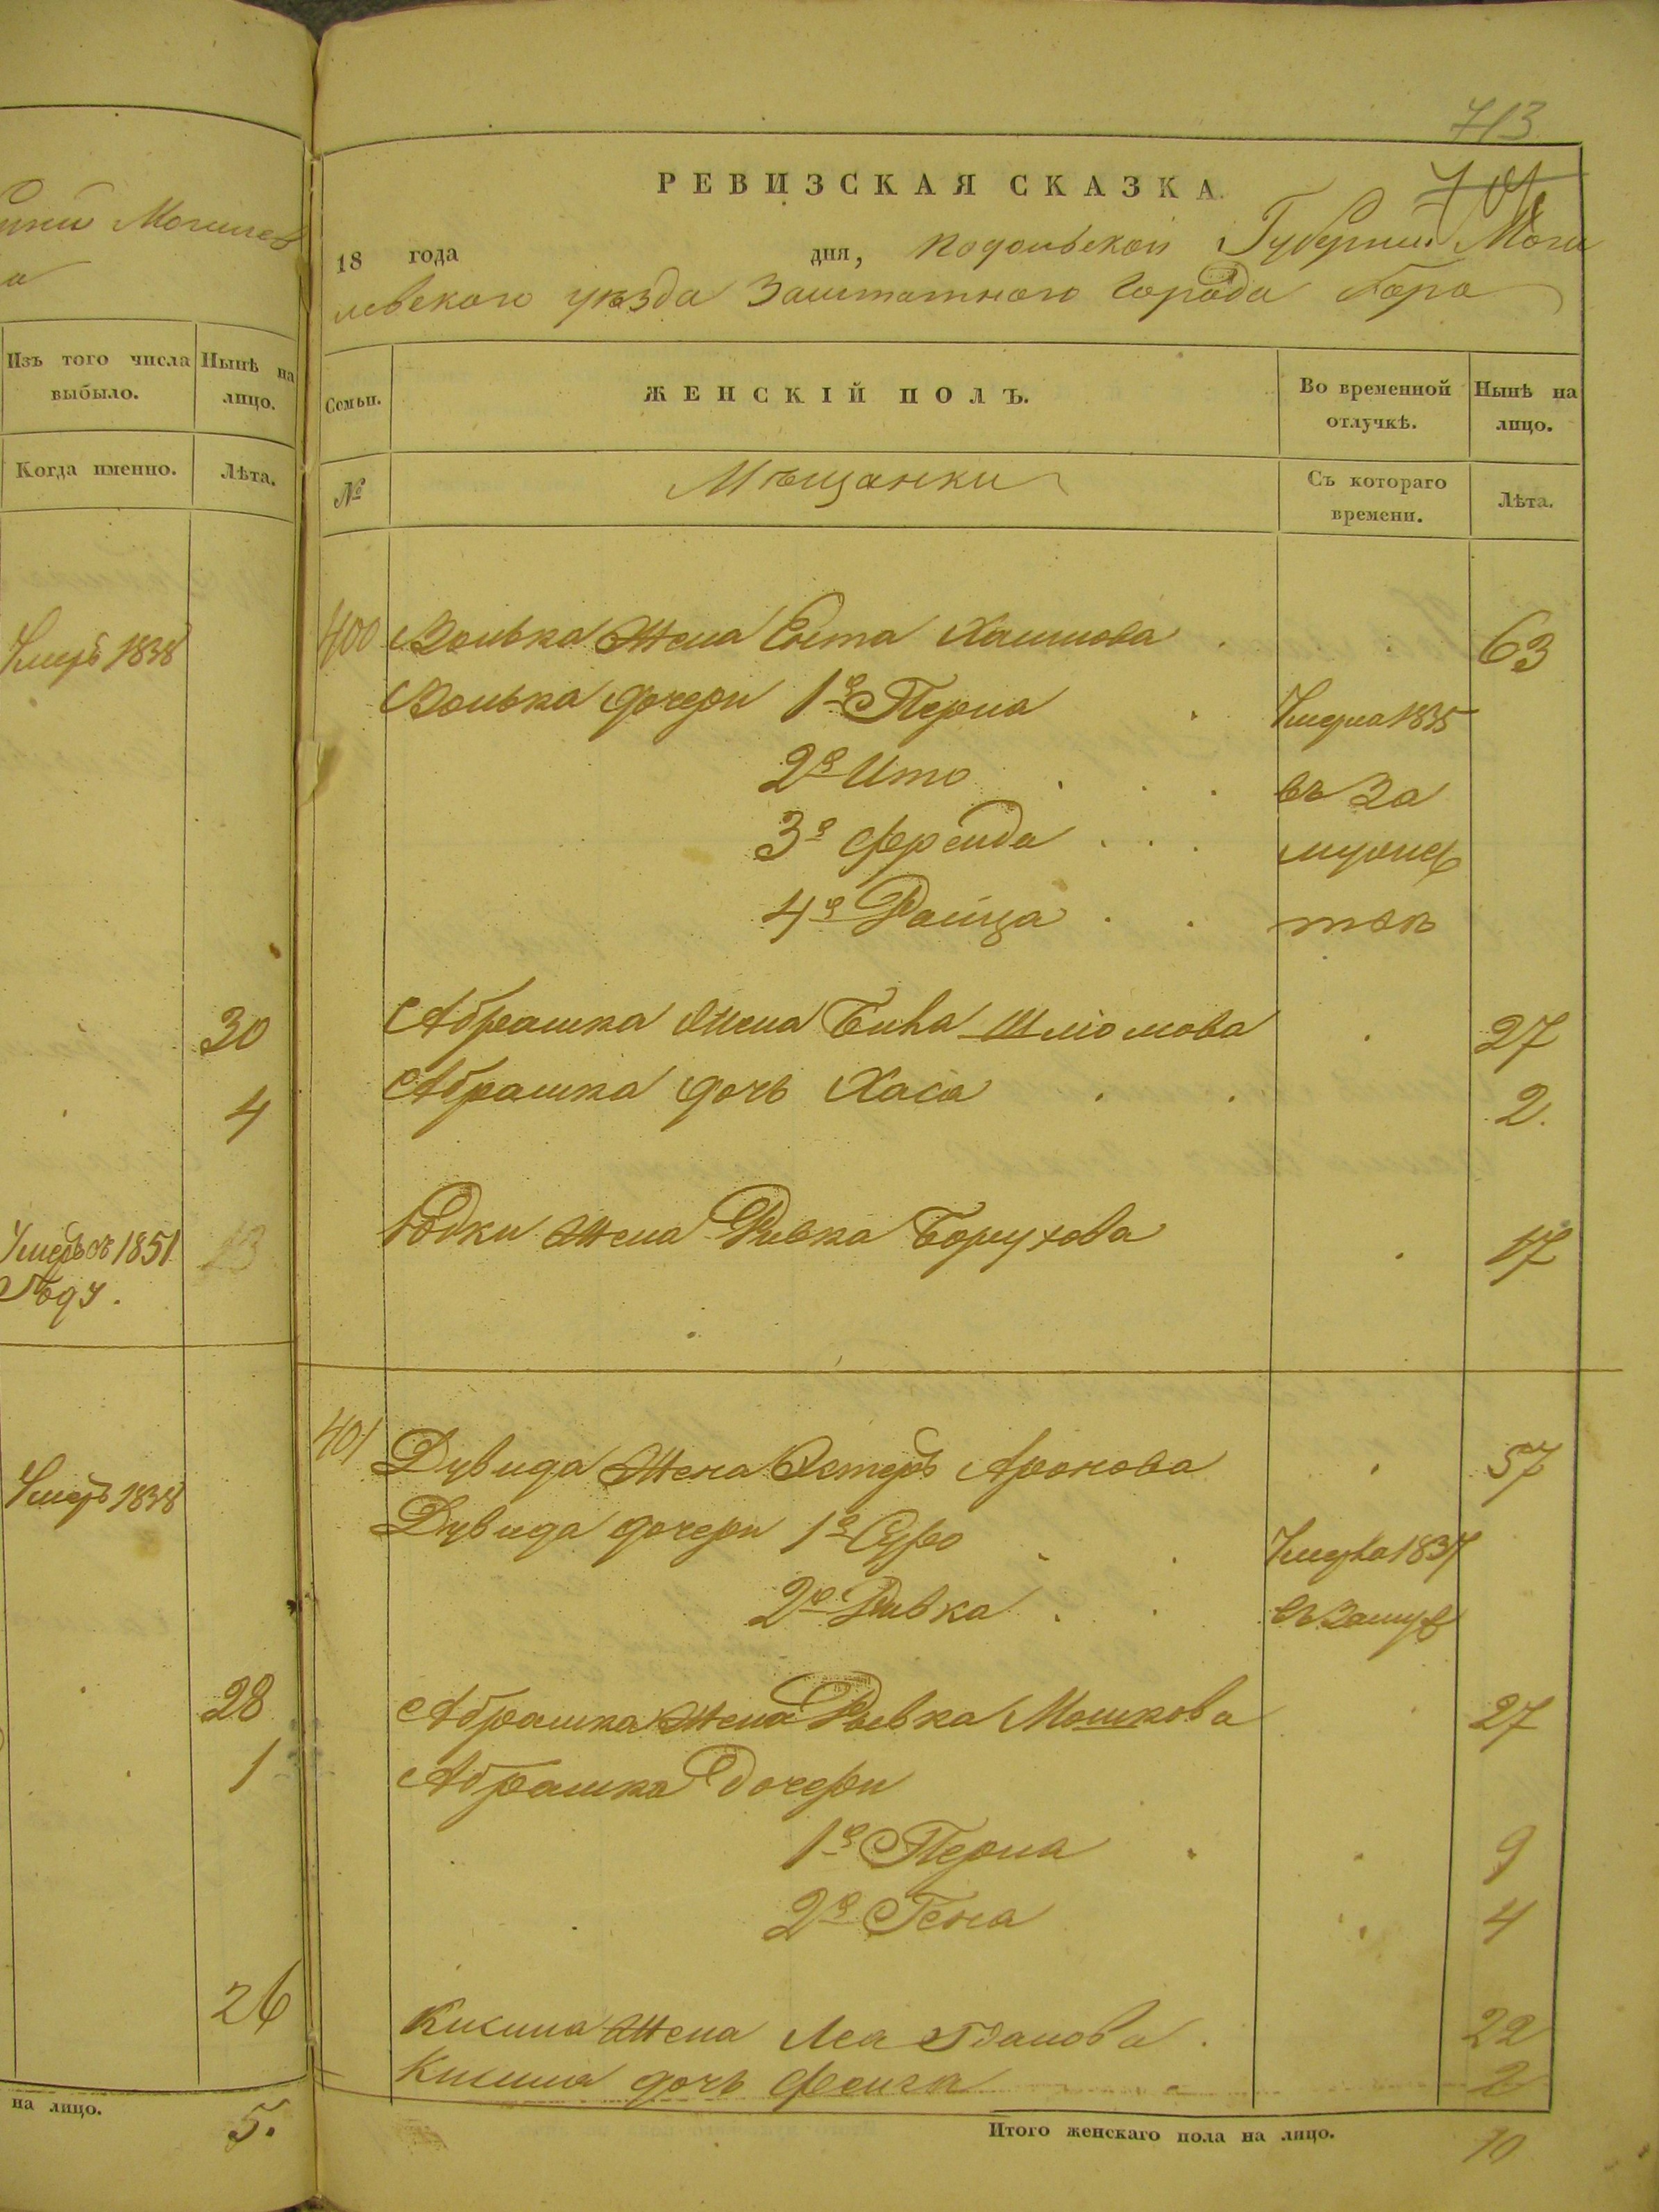 нии Могилев
а
Изъ того числа выбыло.
Нынѣ на лицо.
Когда именно.
Лѣта.
Умеръ 1838
30
4
Умеръ въ 1851
Году.
13
Умеръ 1838
28
1
26
на лицо.
5.
713
РЕВИЗСКАЯ СКАЗКА.
18 года дня, Подольской Губернии Моги
левского уѣзда Заштатного Города Бара
Семьи.
ЖЕНСКІЙ ПОЛЪ.
Во временной отлучкѣ.
Нынѣ на лицо.
№
Мѣщанки
Съ котораго времени.
Лѣта.
400 Волька Жена Ента Хаимова 63
Волька дочери 1я Перла Умерла 1835
2я Ита въ За
3я Фрейда мужес
4я Райца твѣ
Абрашка Жена Шліомова 27
Абрашка дочь Хаса 2.
Юдки Жена Ривка Борухова 17
401 Дувида Жена Естеръ Аронова 57
Дувида дочери 1я Сура Умерла 1837
2я Ривка въ Замуж
Абрашка Жена Ривка Мошкова 27
Абрашка Дочери
1я Перла 9
2я Геня 4
Кисила Жена Лея 22
Кисила дочь Фейга 2
Итого женскаго пола на лицо.
10